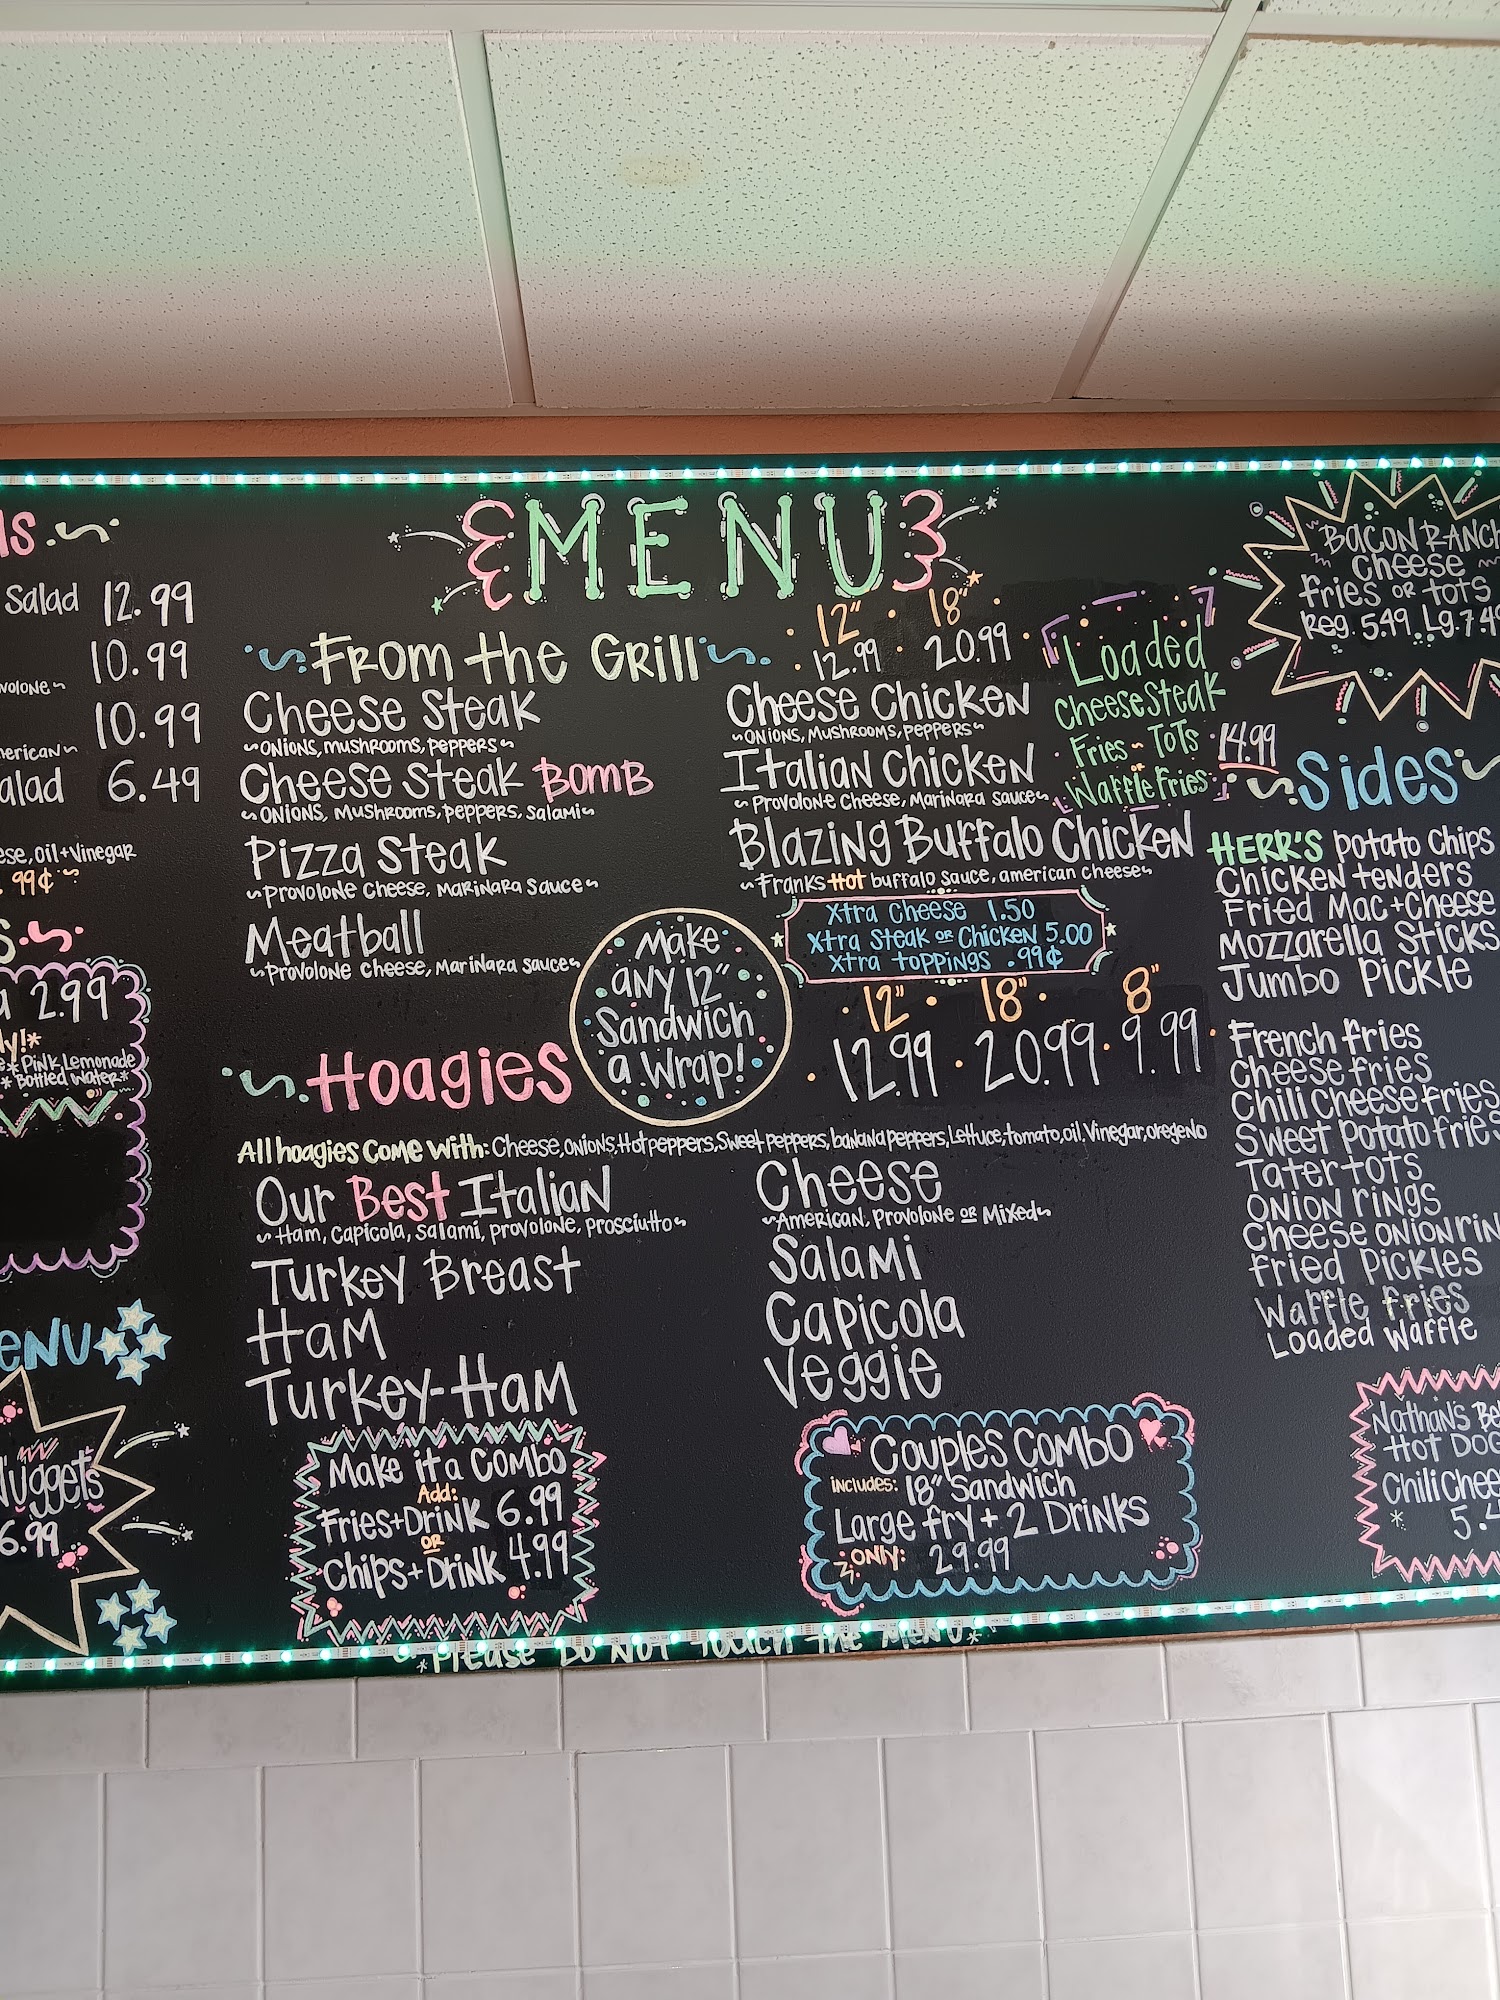 Salad 12.99
10.99
10.99
6.49
ese, Oil + Vinegar
.99¢
2.99
* Pink Lemonade
* Bottled Water *
ENU
Nuggets
6.99
MENU
From the Grill
12" 18"
12.99 20.99
Cheese Steak
~Onions, Mushrooms, Peppers~
Cheese Steak Bomb
~Onions, Mushrooms, Peppers, Salami~
Pizza Steak
~Provolone Cheese, Marinara Sauce~
Meatball
~Provolone Cheese, Marinara Sauce~
Cheese Chicken
~Onions, Mushrooms, Peppers~
Italian Chicken
~Provolone Cheese, Marinara Sauce~
Blazing Buffalo Chicken
~Franks Hot buffalo sauce, american cheese~
Xtra Cheese 1.50
Xtra Steak or Chicken 5.00
Xtra toppings .99¢
Loaded
Cheese Steak
Fries ~ Tots
or
Waffle Fries
14.99
Make
any 12"
Sandwich
a Wrap!
Hoagies
12" 18" 8"
12.99 20.99 9.99
All hoagies Come With: Cheese, onions, Hot peppers, Sweet peppers, banana peppers, Lettuce, tomato, oil, Vinegar, oregeno
Our Best Italian
~Ham, Capicola, Salami, Provolone, Prosciutto~
Turkey Breast
Ham
Turkey-Ham
Cheese
~American, Provolone or Mixed~
Salami
Capicola
Veggie
Make it a Combo
Add:
Fries + Drink 6.99
or
Chips + Drink 4.99
Couples Combo
includes: 18" Sandwich
Large fry + 2 Drinks
Only: 29.99
*Please Do Not Touch the Menu*
Bacon Ranch
Cheese
fries or tots
Reg. 5.49 Lg. 7.49
Sides
HERR'S Potato Chips
Chicken tenders
Fried Mac + Cheese
Mozzarella Sticks
Jumbo Pickle
French fries
Cheese fries
Chili Cheese fries
Sweet Potato fries
Tater tots
Onion rings
Cheese onion rin
Fried Pickles
Waffle fries
Loaded Waffle
Nathan's Be
Hot Dog
Chili Chee
* 5.4